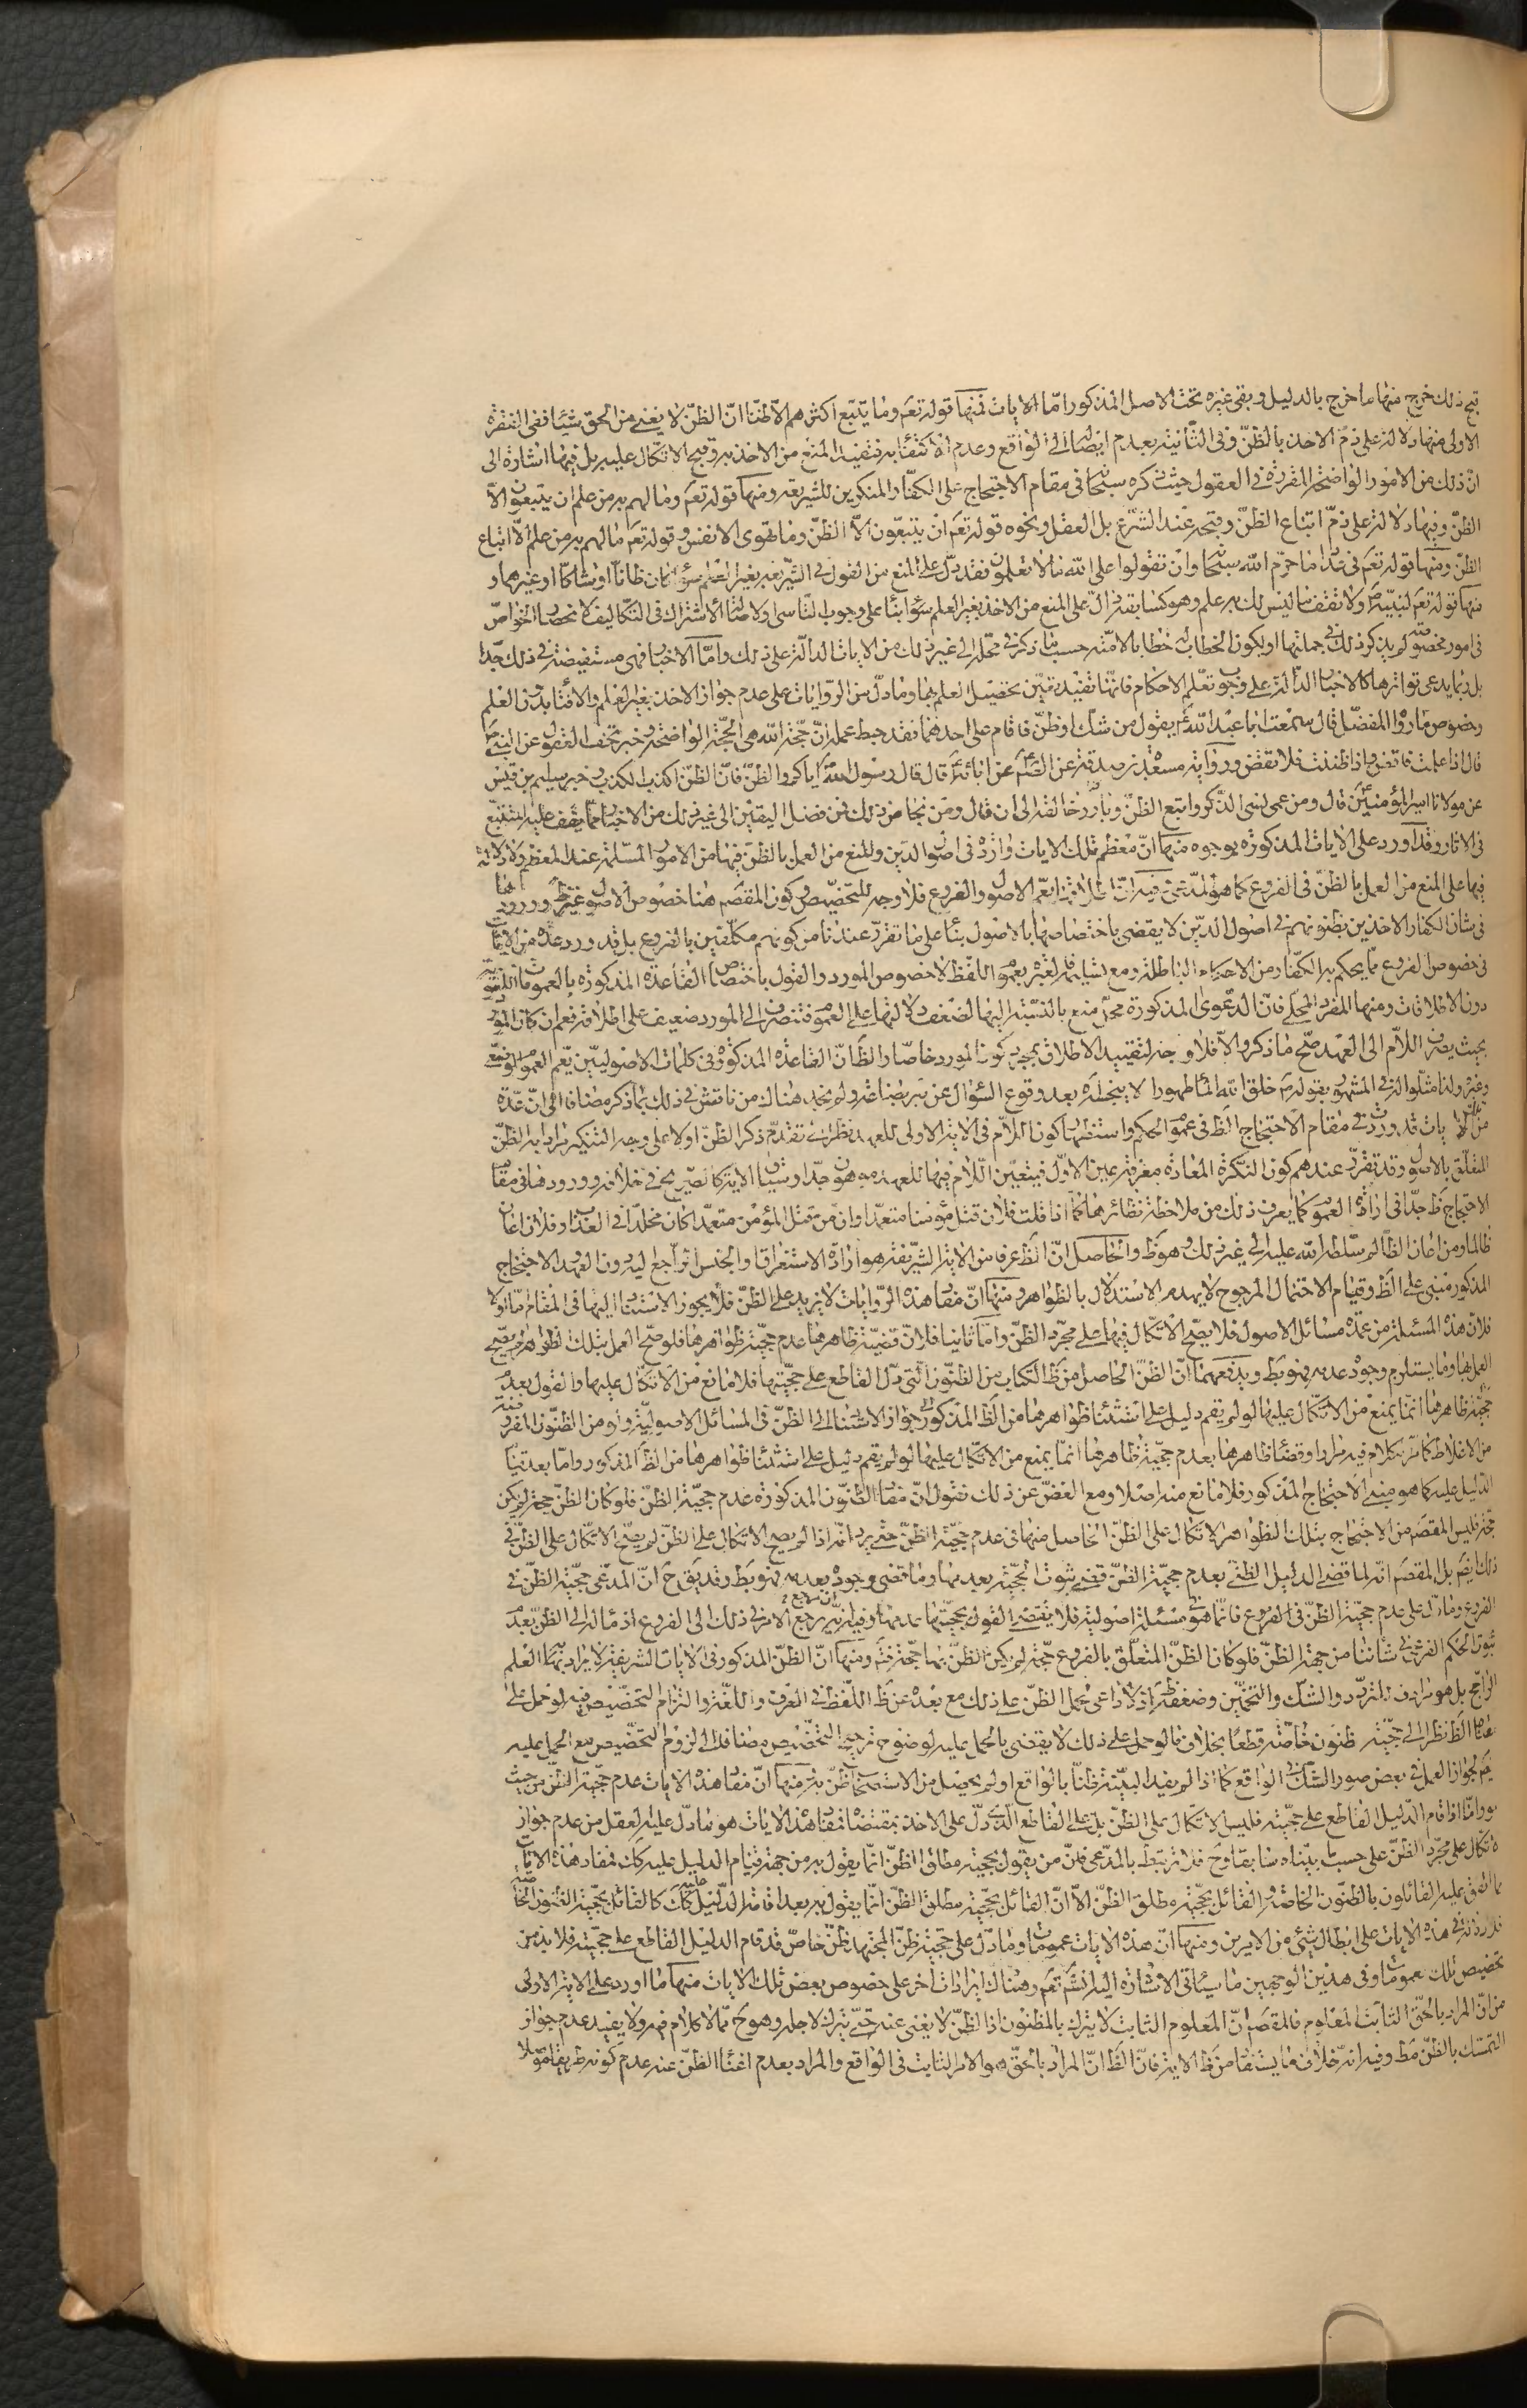 قبح ذلك خرج منها ما خرج بالدليل وبقى غيره تحت الاصل المذكور امّا الايات فمنها قوله تعم وما يتبع اكثرهم الّا ظنّا انّ الظنّ لا يغنى من الحق شيئا ففى الفقرة
الاولى منها دلالة على ذمّ الاخذ بالظنّ وفى الثّانية بعدم ايصاله الى الواقع وعدم الاكتفاء به فتفيد المنع من الاخذ به وقبح الاتّكال عليه بل فيها اشارة الى
انّ ذلك من الامور الواضحة المقررة فى العقول حيث ذكره سبحانه فى مقام الاحتجاج على الكفّار المنكرين للشريعة ومنها قوله تعم وما لهم به من علم ان يتبعون الّا
الظنّ وفيها دلالة على ذمّ اتباع الظنّ وقبحه عند الشرّع بل العقل ونحوه قوله تعم ان يتبعون الّا الظنّ وما تهوى الانفس وقوله تعم ما لهم به من علم الّا اتباع
الظنّ ومنها قوله تعم فى عداد ما حرّم الله سبحانه وان تقولوا على الله ما لا تعلمون فقد دلّ على المنع من القول فى الشّريعة بغير العلم سواء كان ظانّا او شاكّا او غيرهما و
منها قوله تعم لنبيّه ص ولا تقف ما ليس لك به علم وهو كسابقه فى الدّلالة على المنع من الاخذ بغير العلم بناء على وجوب التاسى واصالة الاشتراك فى التكاليف لانحصار الخواصّ
فى امور مخصوصة لم يذكر ذلك فى جملتها او يكون الخطاب خطابا للامّة حسب ما ذكر فى محلّه الى غير ذلك من الايات الدالّة على ذلك وامّا الاخبار فهى مستفيضة فى ذلك جدّا
بل ربّما يدعى تواترها كالاخبار الدّالّة على وجوب تعلّم الاحكام فانّها تفيد تعيّن تحصيل العلم بها وما دلّ من الرّوايات على عدم جواز الاخذ بغير العلم والافتاء بدون العلم
وخصوص ما رواه المفضّل قال سمعت ابا عبد الله ع يقول من شكّ او ظنّ فاقام على احدهما فقد حبط عمله انّ حجّة الله هى الحجّة الواضحة وخبر تحف العقول عن النبى ص
قال اذا علمت فاقض واذا ظننت فلا تقض ورواية مسعدة بن صدقة عن الصّادق ع عن ابائه ع قال قال رسول الله ص اياكم والظنّ فانّ الظنّ اكذب الكذب وخبر سليم بن قيس
عن مولانا امير المؤمنين ع قال ومن عمى نسى الذّكر واتبع الظنّ وبارز خالقه الى ان قال ومن نجا من ذلك فمن فضل اليقين الى غير ذلك من الاخبار ممّا يقف عليه المتتبّع
فى الاثار وقد اورد على الايات المذكورة بوجوه منها انّ معظم تلك الايات واردة فى اصول الدين والمنع من العمل بالظنّ فيها من الامور المسلّمة عند المعظم ولا دلالة
فيها على المنع من العمل بالظنّ فى الفروع كما هو المدّعى وفيه انّ اطلاقها يعمّ الاصول والفروع فلا وجه للتخصيص وكون المقصم هنا خصوص الاصول غير ظ وورودها
فى شان الكفار الاخذين بظنونهم فى اصول الدّين لا يقضى باختصاصها بالاصول بناء على ما تقرّر عندنا من كونهم مكلّفين بالفروع بل قد ورد عدّة من الايات
فى خصوص الفروع ممّا يحكم به الكفّار من الاحكام الباطلة ومع تسليمه فالعبرة بعموم اللفظ لا خصوص المورد والقول باختصاص القاعدة المذكورة بالعمومات اللغويّة
دون الاطلاقات ومنها المفرد المحلّى فانّ الدّعوى المذكورة محلّ منع بالنّسبة اليها لضعف دلالتها على العموم فتنصرف الى المورد ضعيف على اطلاقه نعم ان كان المورد
بحيث يصرف اللّام الى العهد صحّ ما ذكر والّا فلا وجه لتقييد الاطلاق بمجرد كون المورد خاصّا والظّ انّ القاعدة المذكورة فى كلمات الاصوليّين يعمّ العموم الوضعىّ
وغيره ولذا مثّلوا له فى المشهور بقوله ع خلق الله الماء طهورا لا ينجّسه بعد وقوع السّؤال عن بئر بضاعة ولم نجد هناك من ناقش فى ذلك بما ذكر مضافا الى انّ عدة
من الايات قد وردت فى مقام الاحتجاج الظّ فى عموم الحكم واستظهار كون اللّام فى الاية الاولى للعهد نظرا الى تقدّم ذكر الظنّ اولا على وجه التنكير مرادا به الظنّ
المتعلّق بالاصول وقد تقرّر عندهم كون النكرة المعادة معرفة عين الاوّل فيتعيّن اللّام فيها للعهد موهون جدّا وسياق الاية كالصّريح فى خلافه وورودها فى مقام
الاحتجاج ظ جدّا فى ارادة العموم كما يعرف ذلك من ملاحظة نظائرها كما اذا قلت فلان قتل مؤمنا متعمّدا وانّ من قتل المؤمن متعمّدا كان مخلّدا فى العذاب وفلان اعان
ظالما ومن اعان الظالم سلّطه الله عليه الى غير ذلك وهو ظ والحاصل انّ الظّ عرفا من الاية الشّريفة هو ارادة الاستغراق او الجنس الرّاجع اليه دون العهد الاحتجاج
المذكور مبنى على الظّ وقيام الاحتمال المرجوح لا يهدم الاستدلال بالظواهر ومنها انّ مفاد هذه الرّوايات لا يزيد على الظنّ فلا يجوز الاستناد اليها فى المقام امّا اوّلا
فلانّ هذه المسئلة من عمدة مسائل الاصول فلا يصحّ الاتّكال فيها على مجرّد الظنّ وامّا ثانيا فلانّ قضيّة ظاهرها عدم حجّية ظواهرها فلو صحّ العمل بتلك الظواهر لم يصحّ
العمل بها وما يستلزم وجوده عدمه فهو بط ويدفعهما انّ الظنّ الحاصل من ظ الكتاب من الظنّون التى دلّ القاطع على حجّيتها فلا مانع من الاتّكال عليها والقول بعدم
حجّية ظاهرها انّما يمنع من الاتّكال عليها لو لم يقم دليل على استثناء ظواهرها من الظّ المذكور جواز الاستناد الى الظنّ فى المسائل الاصوليّة
من الاغلاط كما مرّ الكلام فيه مرارا وقضاء ظاهرها بعدم حجّية ظاهرها انّما يمنع من الاتّكال عليها لو لم يقم دليل على استثناء ظواهرها من الظّ المذكور وامّا بعد قيام
الدّليل عليه كما هو مبنى الاحتجاج المذكور فلا مانع منه اصلا ومع الغضّ عن ذلك نقول انّ مفاد الظنّون المذكورة عدم حجّية الظنّ فلو كان الظنّ حجّة لم يكن
حجّة فليس المقصم من الاحتجاج بتلك الظواهر الاتّكال على الظنّ الحاصل منها فى عدم حجّية الظنّ حتى يرد انّه اذا لم يصح الاتكال على الظنّ لم يصحّ الاتّكال على الظنّ فى
ذلك ايضم بل المقصم انّه لما قضى الدليل الظنّى بعدم حجّية الظنّ قضى ثبوت الحجّية بعدمها وما قضى وجوده بعدمه فهو بط وقد يق ح انّ المدّعى حجّية الظنّ فى
الفروع وما دلّ على عدم حجّية الظنّ فى الفروع فانّما هو فى مسئلة اصولية فلا يقتضى القول بحجّيتها عدمها وفيه انّ مرجع الامر فى ذلك الى الفروع اذ مآله الى الظنّ بعدم
ثبوت الحكم الفرعى فى شاننا من جهة الظنّ فلو كان الظنّ المتعلّق بالفروع حجّة لم يكن الظنّ بها حجّة فتم ومنها انّ الظنّ المذكور فى الايات الشريفة لا يراد به العلم
الرّاجح بل هو مرادف للتردّد والشكّ والتخمين وضعفه ظ اذ لا داعى لحمل الظنّ على ذلك مع بعده عن ظ اللّفظ فى العرف واللّغة والتزام التخصيص فيه لو حمل على
معناه الظّ نظرا الى حجّية ظنون خاصّة قطعًا بخلاف ما لو حمل على ذلك لا يقضى بالحمل عليه لوضوح ترجيح التخصيص مضافا الى لزوم التخصيص مع الحمل عليه
لجواز العمل فى بعض صور الشكّ فى الواقع كما اذا لم يفد البيّنة ظنّا بالواقع او لم يحصل من الاستصحاب ظنّ به ومنها انّ مفاد هذه الايات عدم حجّية الظنّ من حيث
هو وامّا اذا قام الدّليل القاطع على حجّيته فليس الاتكال على الظنّ بل على القاطع الّذى دلّ على الاخذ بمقتضاه فمفاد هذه الايات هو ما دلّ عليه العقل من عدم جواز
الاتّكال على مجرّد الظنّ على حسب ما بيّناه سابقا وح فلا تربط بالمدّعى فانّ من يقول بحجيّة مطلق الظنّ انّما يقول به من جهة قيام الدليل عليه كك فمفاد هذه الايات
مما اتّفق عليه القائلون بالظنون الخاصّة والقائل بحجّية مطلق الظنّ الّا انّ القائل بحجّية مطلق الظنّ انّما يقول به بعد اقامة الدّليل عليه كك كالقائل بحجّية الظنون الخاصّة
فلا دلالة فى هذه الايات على ابطال شئ من الامرين ومنها انّ هذه الايات عمومات وما دلّ على حجيّة ظنّ المجتهد ظنّ خاصّ قد قام الدليل القاطع على حجّيته فلا بدّ من
تخصيص تلك العمومات وفى هذين الوجهين ما سياتى الاشارة اليه انشم تعم وهناك ايرادات اخر على خصوص بعض تلك الايات منها ما اورد على الاية الاولى
من انّ المراد بالحقّ الثابت المعلوم فالمقصم انّ المعلوم الثابت لا يترك بالمظنون اذ الظنّ لا يغنى عنه حتى يترك لاجله وهو ح ممّا لا كلام فيه ولا يفيد عدم جواز
التمسّك بالظنّ مط وفيه انّه خلاف ما يستفاد من ظ الاية فانّ الظّ انّ المراد بالحقّ هو الامر الثابت فى الواقع والمراد بعدم اغناء الظنّ عنه عدم كونه طريقا موصلا